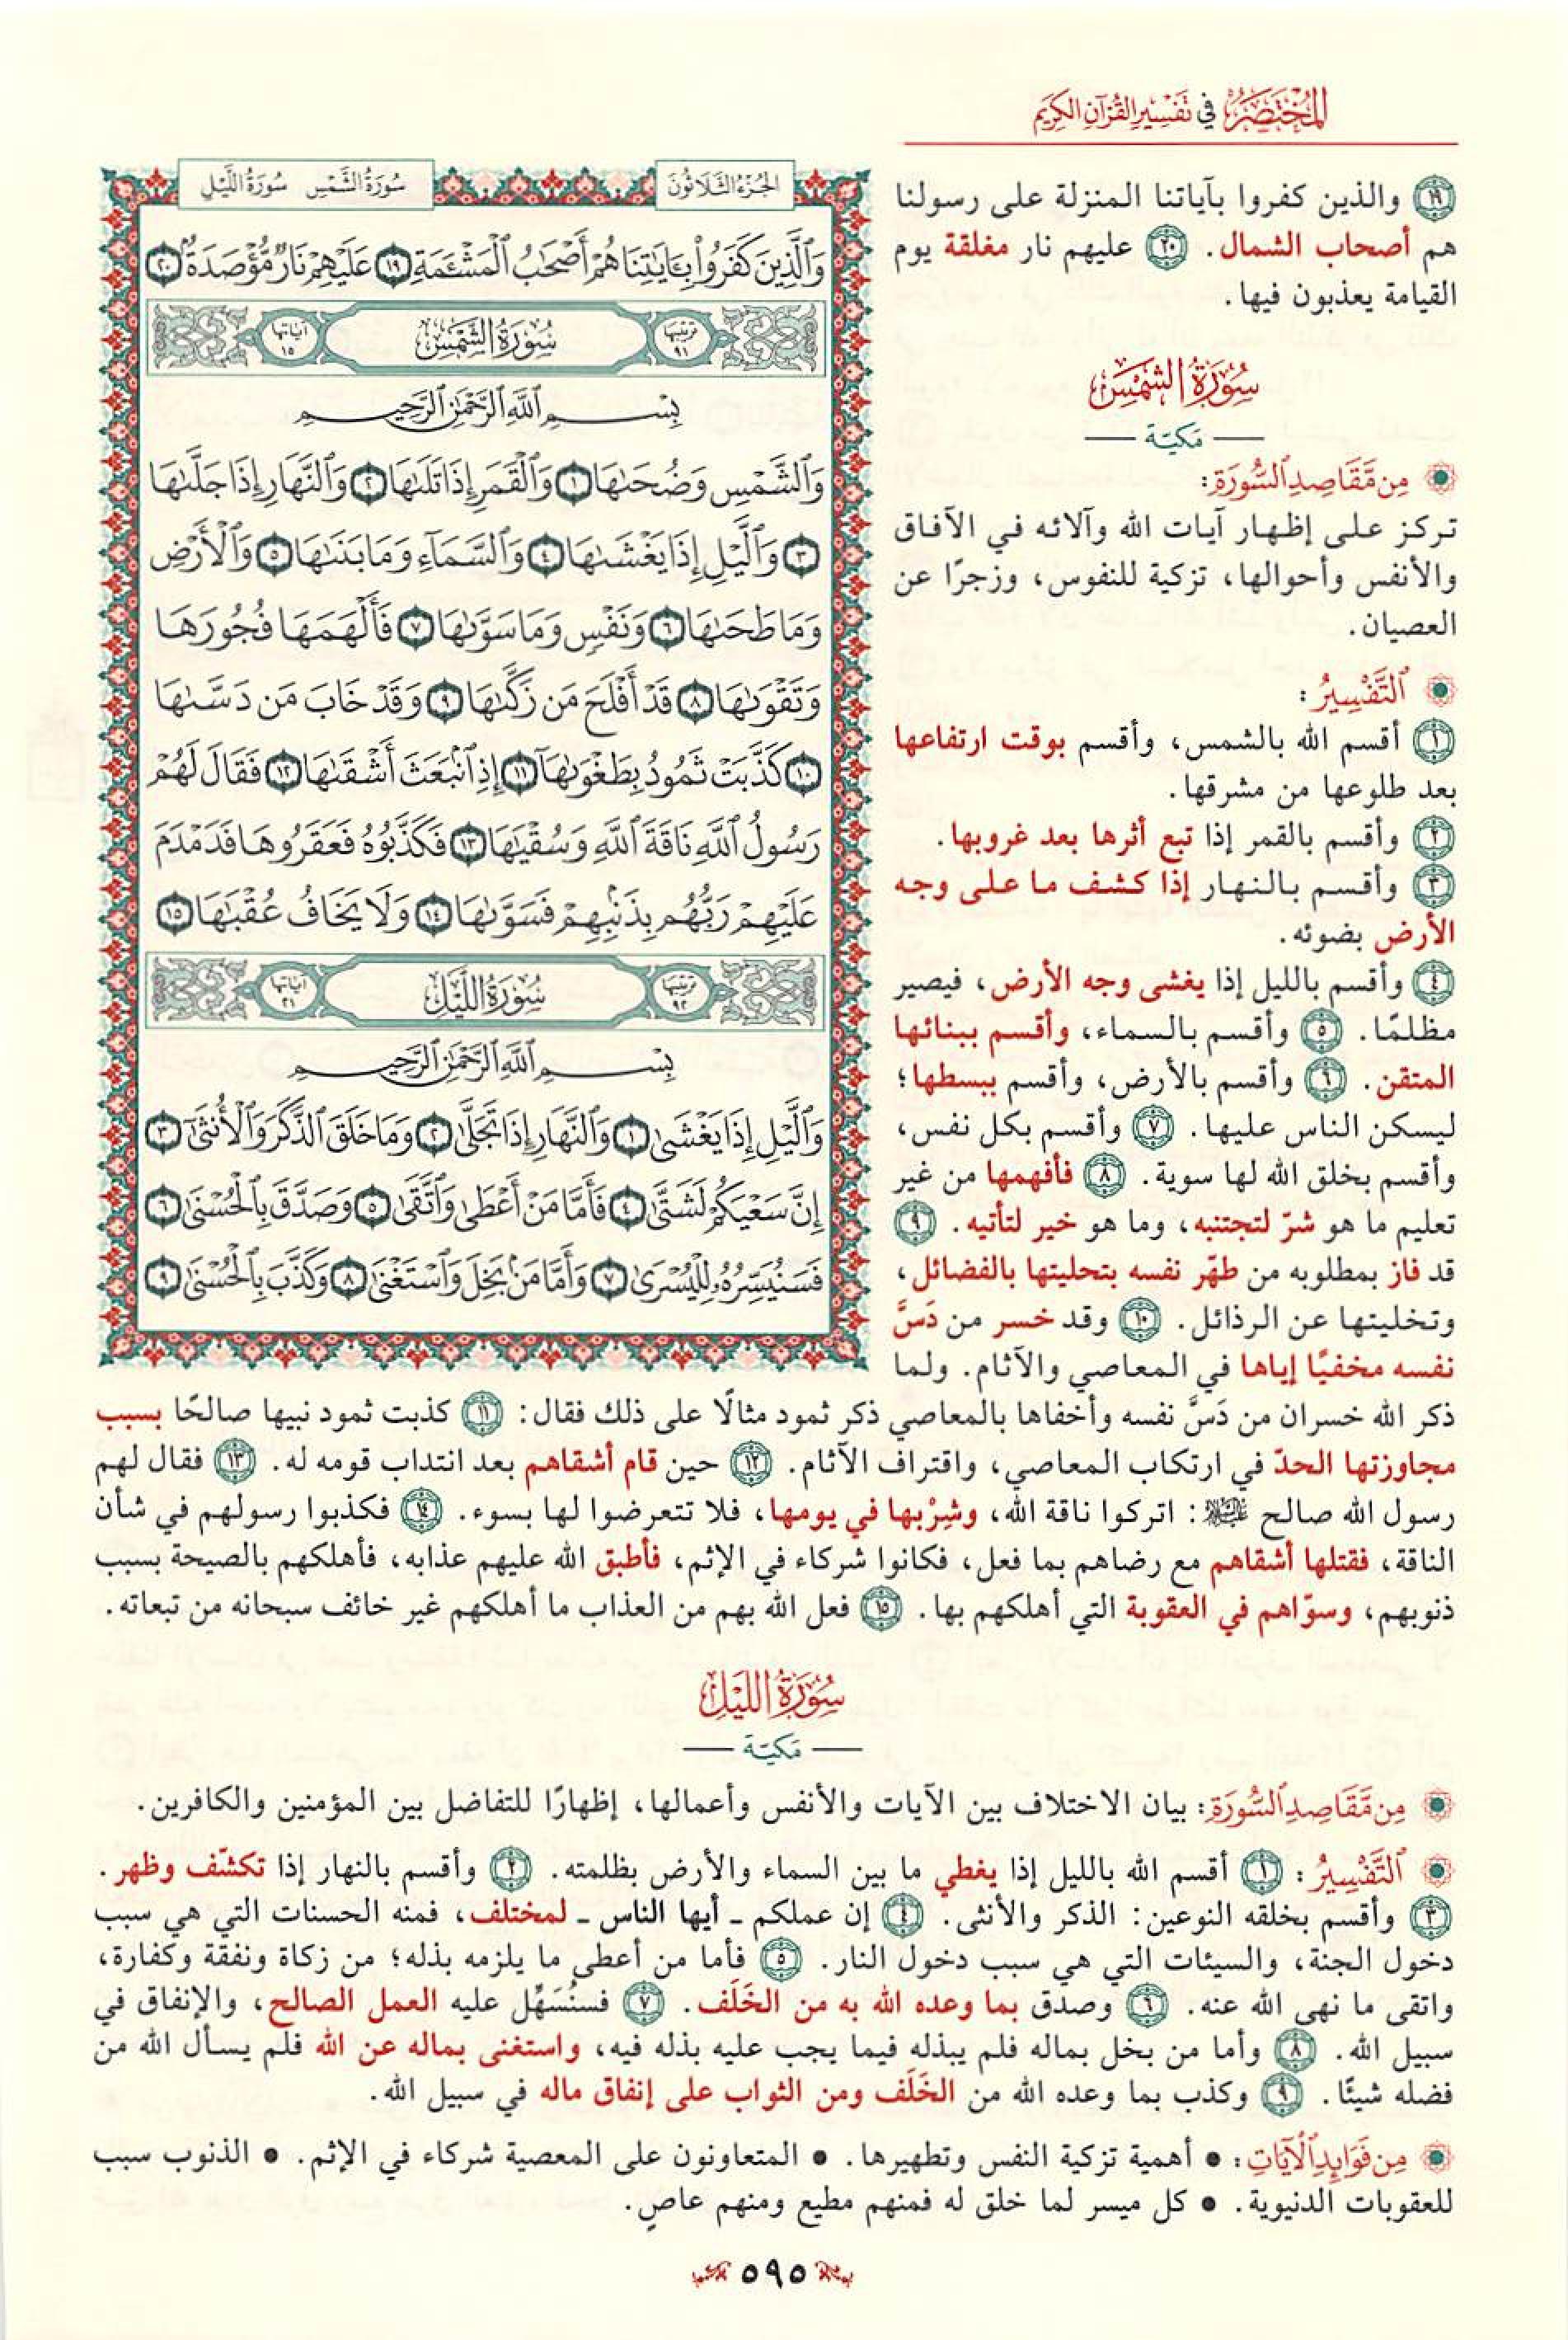 المختصر في تفسير القرآن الكريم
١٩ والذين كفروا بآياتنا المنزلة على رسولنا
هم أصحاب الشمال. ٢٠ عليهم نار مغلقة يوم
القيامة يعذبون فيها.
سورة الشمس
مكية
من مقاصد السورة:
تركز على إظهار آيات الله وآلائه في الآفاق
والأنفس وأحوالها، تزكية للنفوس، وزجرًا عن
العصيان.
التفسير:
١ أقسم الله بالشمس، وأقسم بوقت ارتفاعها
بعد طلوعها من مشرقها.
٢ وأقسم بالقمر إذا تبع أثرها بعد غروبها.
٣ وأقسم بالنهار إذا كشف ما على وجه
الأرض بضوئه.
٤ وأقسم بالليل إذا يغشى وجه الأرض، فيصير
مظلمًا. ٥ وأقسم بالسماء، وأقسم ببنائها
المتقن. ٦ وأقسم بالأرض، وأقسم ببسطها؛
ليسكن الناس عليها. ٧ وأقسم بكل نفس،
وأقسم بخلق الله لها سوية. ٨ فأفهمها من غير
تعليم ما هو شرّ لتجتنبه، وما هو خير لتأتيه. ٩
قد فاز بمطلوبه من طهّر نفسه بتحليتها بالفضائل،
وتخليتها عن الرذائل. ١٠ وقد خسر من دَسَّ
نفسه مخفيًا إياها في المعاصي والآثام. ولما
الجزء الثلاثون
سورة الشمس سورة الليل
وَٱلَّذِينَ كَفَرُواْ بِـَٔايَٰتِنَا هُمۡ أَصۡحَٰبُ ٱلۡمَشۡـَٔمَةِ ١٩ عَلَيۡهِمۡ نَارٞ مُّؤۡصَدَةُۢ ٢٠
ترتيبها ٩١ سورة الشمس آياتها ١٥
بِسۡمِ ٱللَّهِ ٱلرَّحۡمَٰنِ ٱلرَّحِيمِ
وَٱلشَّمۡسِ وَضُحَىٰهَا ١ وَٱلۡقَمَرِ إِذَا تَلَىٰهَا ٢ وَٱلنَّهَارِ إِذَا جَلَّىٰهَا
٣ وَٱلَّيۡلِ إِذَا يَغۡشَىٰهَا ٤ وَٱلسَّمَآءِ وَمَا بَنَىٰهَا ٥ وَٱلۡأَرۡضِ
وَمَا طَحَىٰهَا ٦ وَنَفۡسٖ وَمَا سَوَّىٰهَا ٧ فَأَلۡهَمَهَا فُجُورَهَا
وَتَقۡوَىٰهَا ٨ قَدۡ أَفۡلَحَ مَن زَكَّىٰهَا ٩ وَقَدۡ خَابَ مَن دَسَّىٰهَا
١٠ كَذَّبَتۡ ثَمُودُ بِطَغۡوَىٰهَآ ١١ إِذِ ٱنۢبَعَثَ أَشۡقَىٰهَا ١٢ فَقَالَ لَهُمۡ
رَسُولُ ٱللَّهِ نَاقَةَ ٱللَّهِ وَسُقۡيَٰهَا ١٣ فَكَذَّبُوهُ فَعَقَرُوهَا فَدَمۡدَمَ
عَلَيۡهِمۡ رَبُّهُم بِذَنۢبِهِمۡ فَسَوَّىٰهَا ١٤ وَلَا يَخَافُ عُقۡبَٰهَا ١٥
ترتيبها ٩٢ سورة الليل آياتها ٢١
بِسۡمِ ٱللَّهِ ٱلرَّحۡمَٰنِ ٱلرَّحِيمِ
وَٱلَّيۡلِ إِذَا يَغۡشَىٰ ١ وَٱلنَّهَارِ إِذَا تَجَلَّىٰ ٢ وَمَا خَلَقَ ٱلذَّكَرَ وَٱلۡأُنثَىٰٓ ٣
إِنَّ سَعۡيَكُمۡ لَشَتَّىٰ ٤ فَأَمَّا مَنۡ أَعۡطَىٰ وَٱتَّقَىٰ ٥ وَصَدَّقَ بِٱلۡحُسۡنَىٰ ٦
فَسَنُيَسِّرُهُۥ لِلۡيُسۡرَىٰ ٧ وَأَمَّا مَنۢ بَخِلَ وَٱسۡتَغۡنَىٰ ٨ وَكَذَّبَ بِٱلۡحُسۡنَىٰ ٩
ذكر الله خسران من دَسَّ نفسه وأخفاها بالمعاصي ذكر ثمود مثالًا على ذلك فقال: ١١ كذبت ثمود نبيها صالحًا بسبب
مجاوزتها الحدّ في ارتكاب المعاصي، واقتراف الآثام. ١٢ حين قام أشقاهم بعد انتداب قومه له. ١٣ فقال لهم
رسول الله صالح عليه السلام: اتركوا ناقة الله، وشِرْبها في يومها، فلا تتعرضوا لها بسوء. ١٤ فكذبوا رسولهم في شأن
الناقة، فقتلها أشقاهم مع رضاهم بما فعل، فكانوا شركاء في الإثم، فأطبق الله عليهم عذابه، فأهلكهم بالصيحة بسبب
ذنوبهم، وسوّاهم في العقوبة التي أهلكهم بها. ١٥ فعل الله بهم من العذاب ما أهلكهم غير خائف سبحانه من تبعاته.
سورة الليل
مكية
من مقاصد السورة: بيان الاختلاف بين الآيات والأنفس وأعمالها، إظهارًا للتفاضل بين المؤمنين والكافرين.
التفسير: ١ أقسم الله بالليل إذا يغطي ما بين السماء والأرض بظلمته. ٢ وأقسم بالنهار إذا تكشّف وظهر.
٣ وأقسم بخلقه النوعين: الذكر والأنثى. ٤ إن عملكم ـ أيها الناس ـ لمختلف، فمنه الحسنات التي هي سبب
دخول الجنة، والسيئات التي هي سبب دخول النار. ٥ فأما من أعطى ما يلزمه بذله؛ من زكاة ونفقة وكفارة،
واتقى ما نهى الله عنه. ٦ وصدق بما وعده الله به من الخَلَف. ٧ فسنُسَهِّل عليه العمل الصالح، والإنفاق في
سبيل الله. ٨ وأما من بخل بماله فلم يبذله فيما يجب عليه بذله فيه، واستغنى بماله عن الله فلم يسأل الله من
فضله شيئًا. ٩ وكذب بما وعده الله من الخَلَف ومن الثواب على إنفاق ماله في سبيل الله.
من فوائد الآيات: • أهمية تزكية النفس وتطهيرها. • المتعاونون على المعصية شركاء في الإثم. • الذنوب سبب
للعقوبات الدنيوية. • كل ميسر لما خلق له فمنهم مطيع ومنهم عاصٍ.
٥٩٥